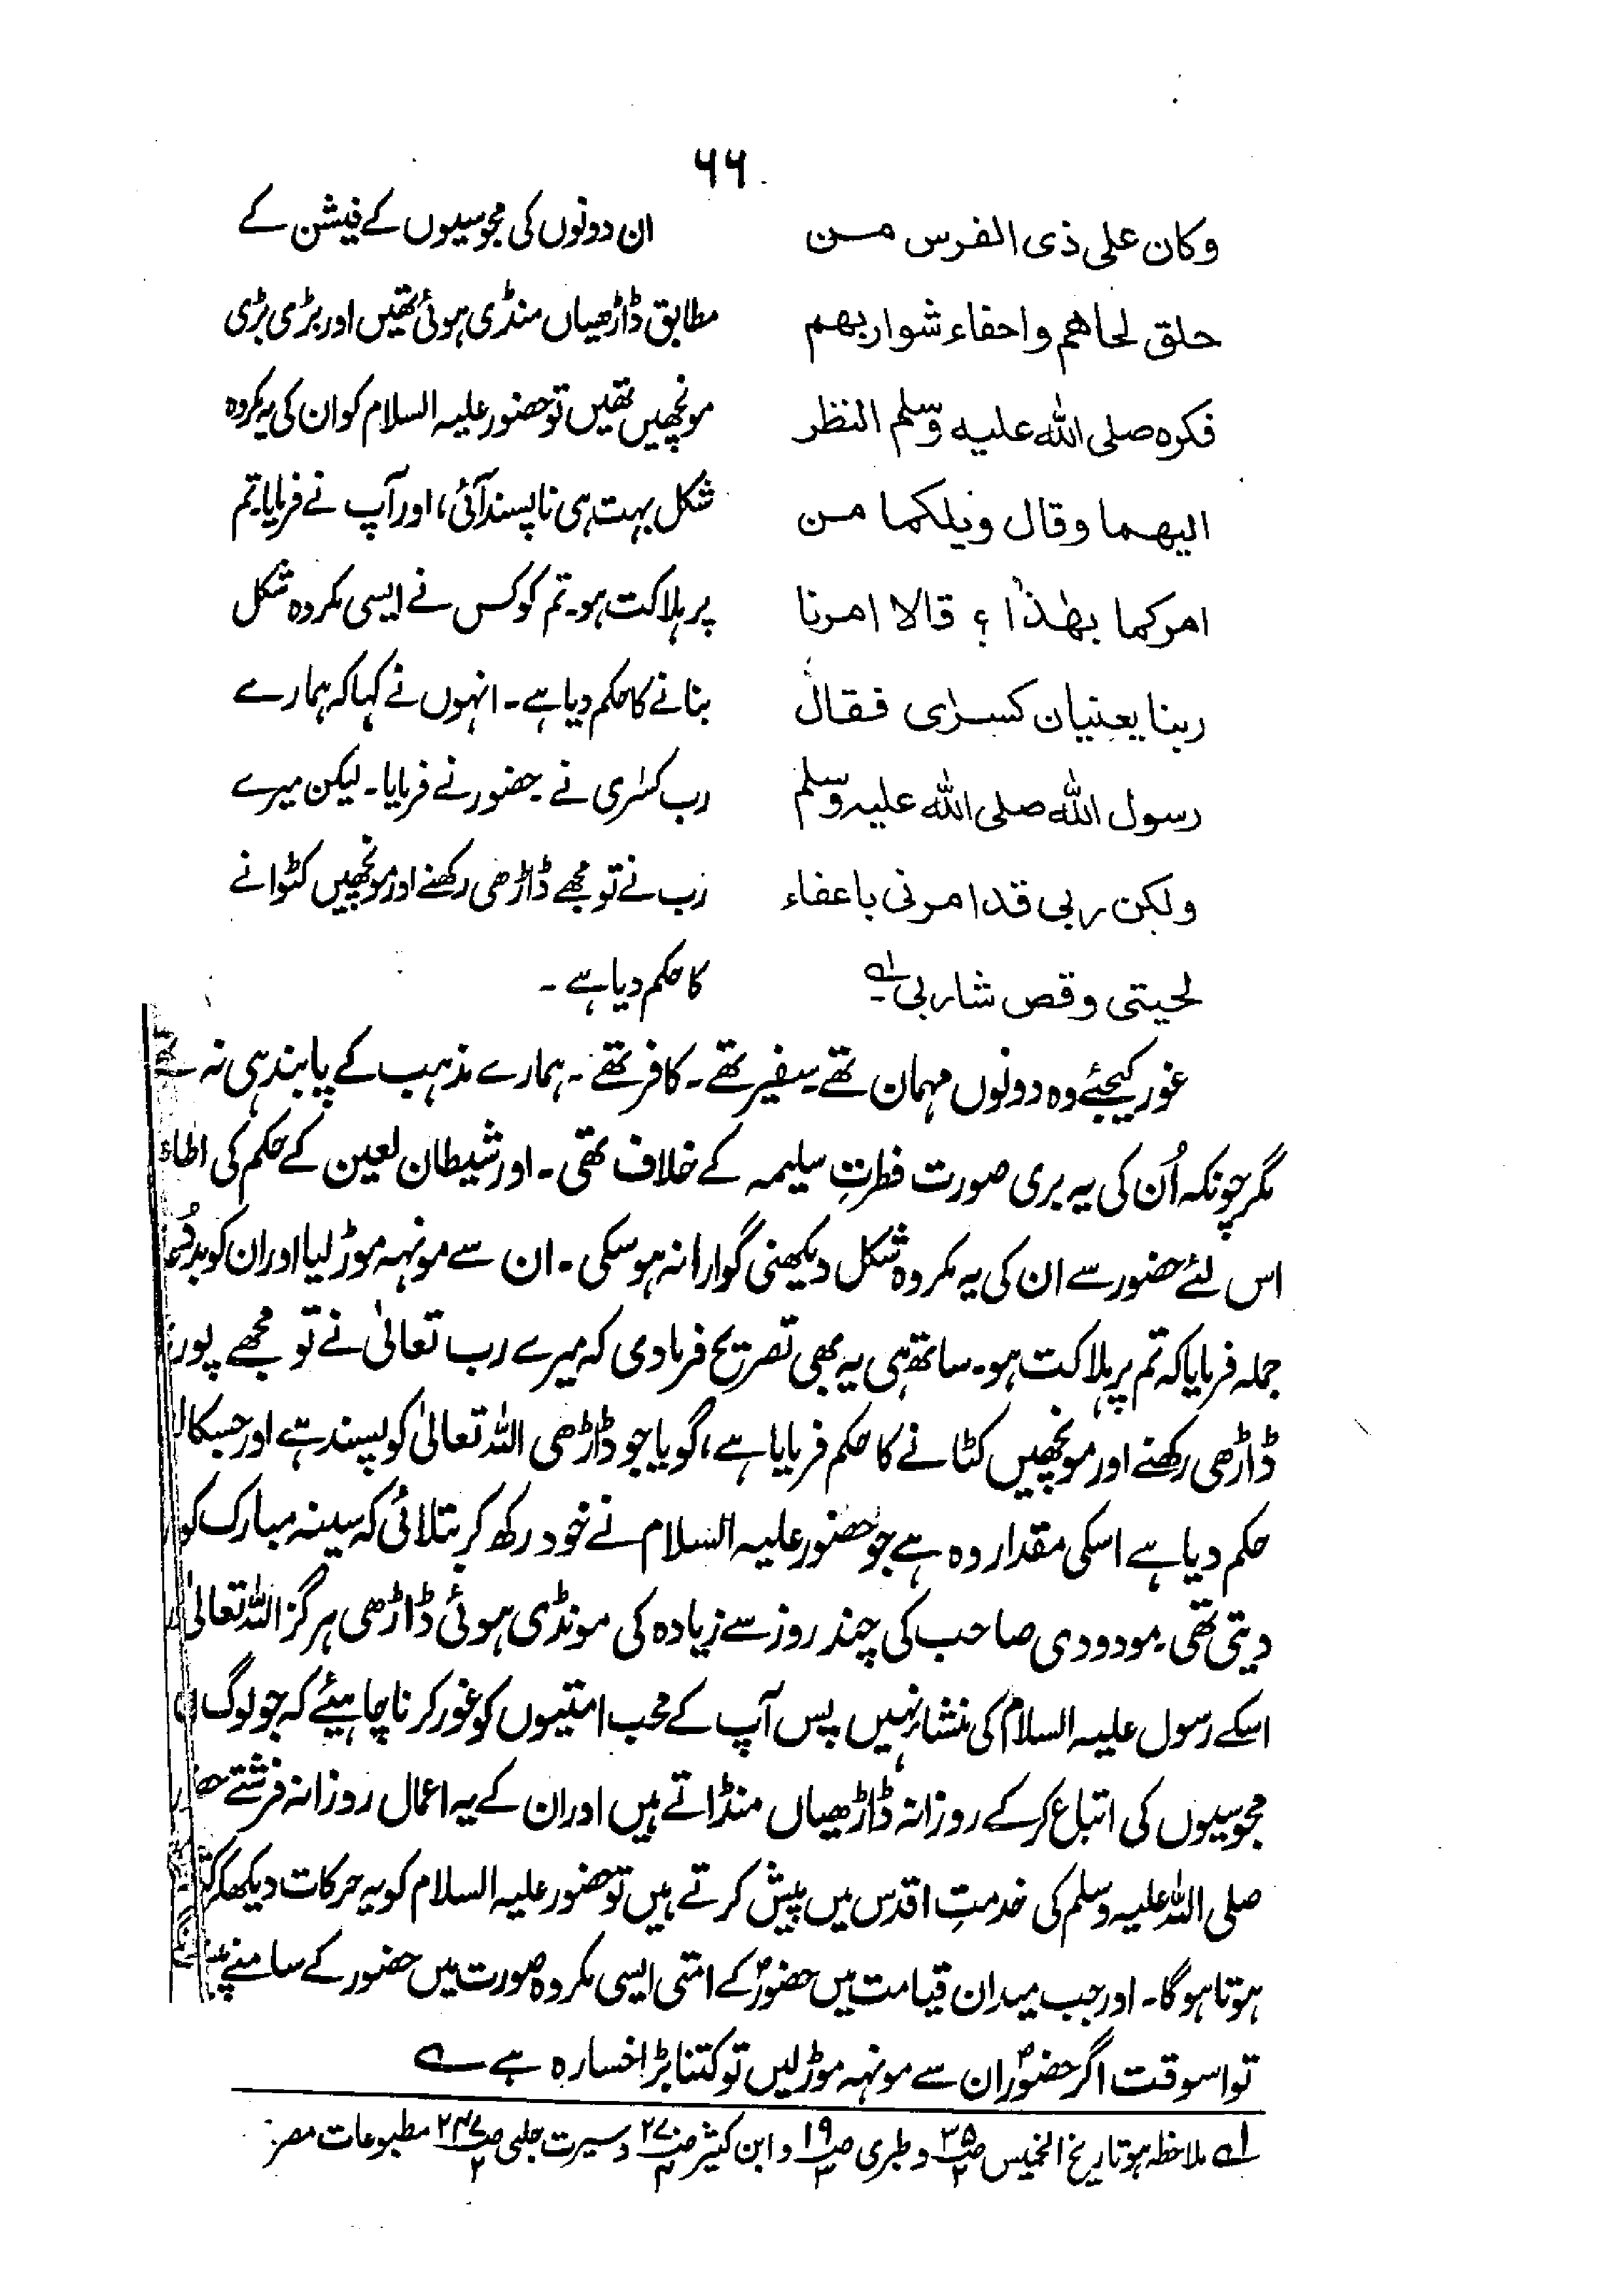 ٦٦
وکان علی ذی الفرس من
حلق لحاهم واحفاء شواربهم
فکره صلی الله علیه وسلم النظر
الیهما وقال ویلکما من
امرکما بهٰذا ؟ قالا امرنا
ربنا یعنیان کسرٰی فقال
رسول الله صلی الله علیه وسلم
ولکن ربی قد امرنی باعفاء
لحیتی وقص شاربی لے
ان دونوں کی مجوسیوں کے فیشن کے
مطابق ڈاڑھیاں منڈی ہوئی تھیں اور بڑی بڑی
مونچھیں تھیں تو حضور علیہ السلام کو ان کی یہ مکروہ
شکل بہت ہی ناپسند آئی، اور آپ نے فرمایا۔ تم
پر ہلاکت ہو۔ تم کو کس نے ایسی مکروہ شکل
بنانے کا حکم دیا ہے۔ انہوں نے کہا کہ ہمارے
رب کسرٰی نے۔ حضور نے فرمایا۔ لیکن میرے
رب نے تو مجھے ڈاڑھی رکھنے اور مونچھیں کٹوانے
کا حکم دیا ہے۔
غور کیجئے وہ دونوں مہمان تھے۔ سفیر تھے۔ کافر تھے۔ ہمارے مذہب کے پابند ہی نہ تھے
مگر چونکہ اُن کی یہ بری صورت فطرتِ سلیمہ کے خلاف تھی۔ اور شیطان لعین کے حکم کی
اس لئے حضور سے ان کی یہ مکروہ شکل دیکھنی گوارا نہ ہو سکی۔ ان سے مونہہ موڑ لیا اور ان کو
جملہ فرمایا کہ تم پر ہلاکت ہو۔ ساتھ ہی یہ بھی تصریح فرما دی کہ میرے رب تعالیٰ نے تو مجھے
ڈاڑھی رکھنے اور مونچھیں کٹانے کا حکم فرمایا ہے، گویا جو ڈاڑھی اللہ تعالیٰ کو پسند ہے اور جسکا
حکم دیا ہے اسکی مقدار وہ ہے جو حضور علیہ السلام نے خود رکھ کر بتلائی کہ سینہ مبارک کو
دیتی تھی۔ مودودی صاحب کی چند روز سے زیادہ کی مونڈی ہوئی ڈاڑھی ہرگز اللہ تعالیٰ
اسکے رسول علیہ السلام کی منشا نہیں پس آپ کے محب امتیوں کو غور کرنا چاہیئے کہ جو لوگ
مجوسیوں کی اتباع کر کے روزانہ ڈاڑھیاں منڈاتے ہیں اور ان کے یہ اعمال روزانہ فرشتے
صلی اللہ علیہ وسلم کی خدمتِ اقدس میں پیش کرتے ہیں تو حضور علیہ السلام کو یہ حرکات دیکھکر
ہوتا ہو گا۔ اور جب میدان قیامت میں حضورؐ کے امتی ایسی مکروہ صورت میں حضور کے سامنے
تو اسوقت اگر حضورؐ ان سے مونہہ موڑ لیں تو کتنا بڑا خسارہ ہے ؎
لے ملاحظہ ہو تاریخ الخمیس ص ۳۵/۲ و طبری ص ۹۱/۳ و ابن کثیر ص ۲۷۰/۴ و سیرت حلبی ص ۲۴۷/۲ مطبوعات مصر